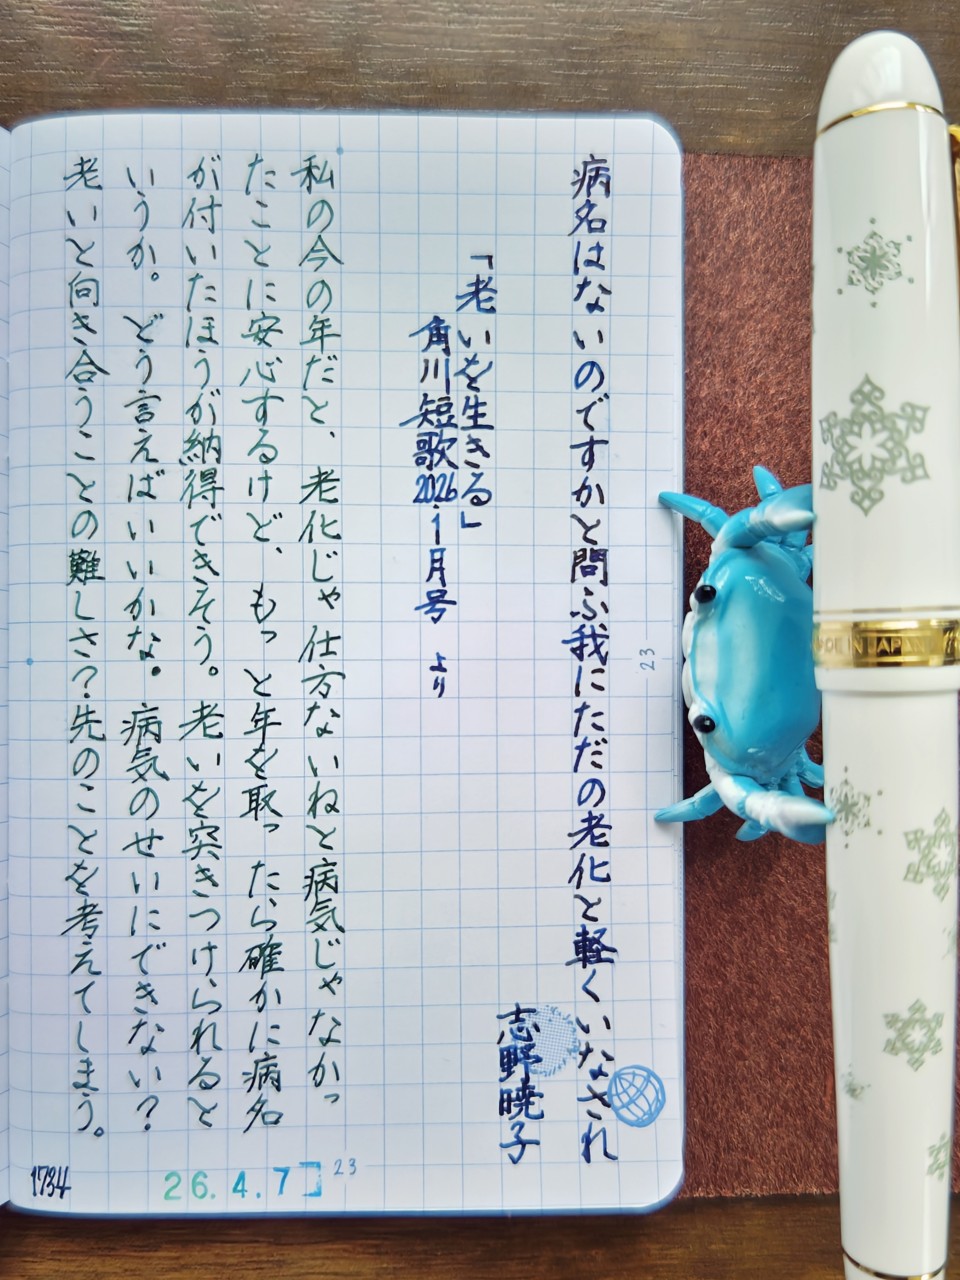 病名はないのですかと問ふ我にただの老化と軽くいなされ
志野暁子
「老いを生きる」
角川短歌2026.1月号 より
私の今の年だと、老化じゃ仕方ないねと病気じゃなかっ
たことに安心するけど、もっと年を取ったら確かに病名
が付いたほうが納得できそう。老いを突きつけられると
いうか。どう言えばいいかな。病気のせいにできない？
老いと向き合うことの難しさ？先のことを考えてしまう。
23
1734
26.4.7
23
MADE IN JAPAN